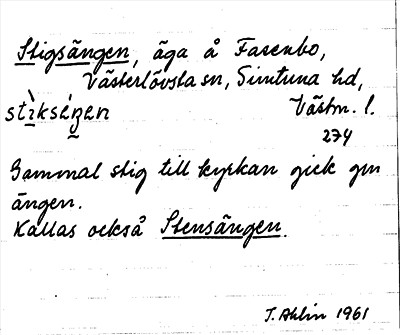 Stigsängen, äga å Fasenbo,
Västerlövsta sn, Simtuna hd,
Västm. l.
274
Gammal stig till kyrkan gick gm
ängen.
Kallas också Stensängen.
J. Ahlin 1961